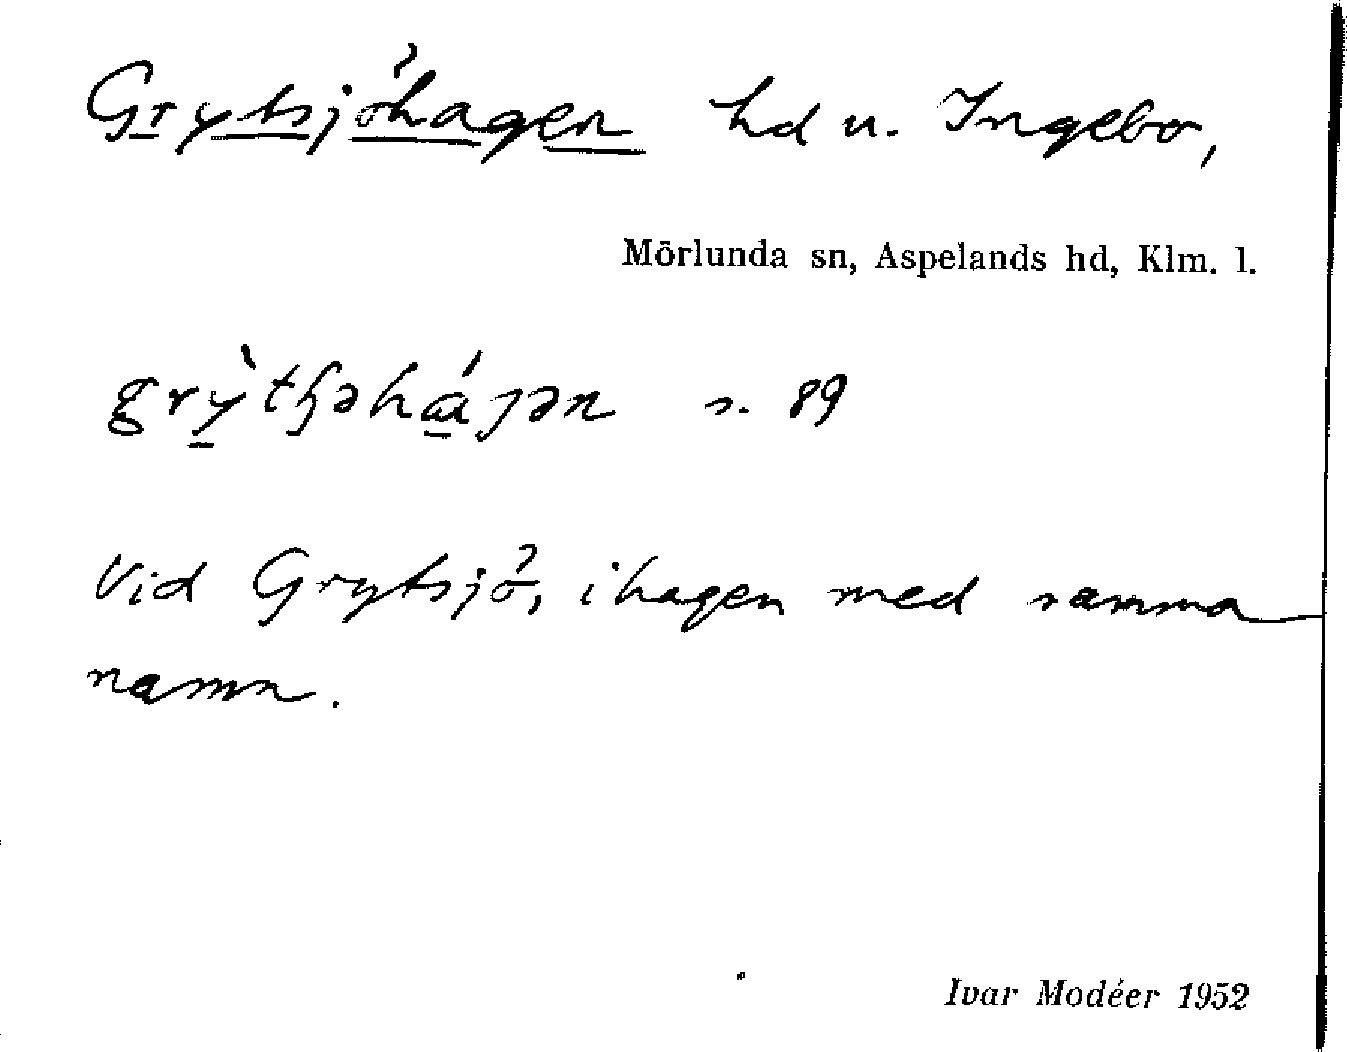 Grytsjöhagen hd u. Ingebo,
Mörlunda sn, Aspelands hd, Klm. l.
s. 89
Vid Grytsjö, i hagen med samma
namn.
Ivar Modéer 1952